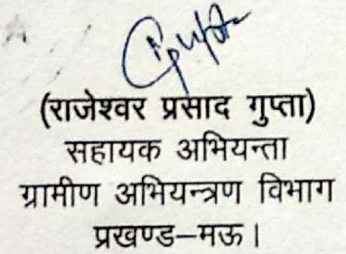 Gupta
(राजेश्वर प्रसाद गुप्ता)
सहायक अभियन्ता
ग्रामीण अभियन्त्रण विभाग
प्रखण्ड–मऊ।